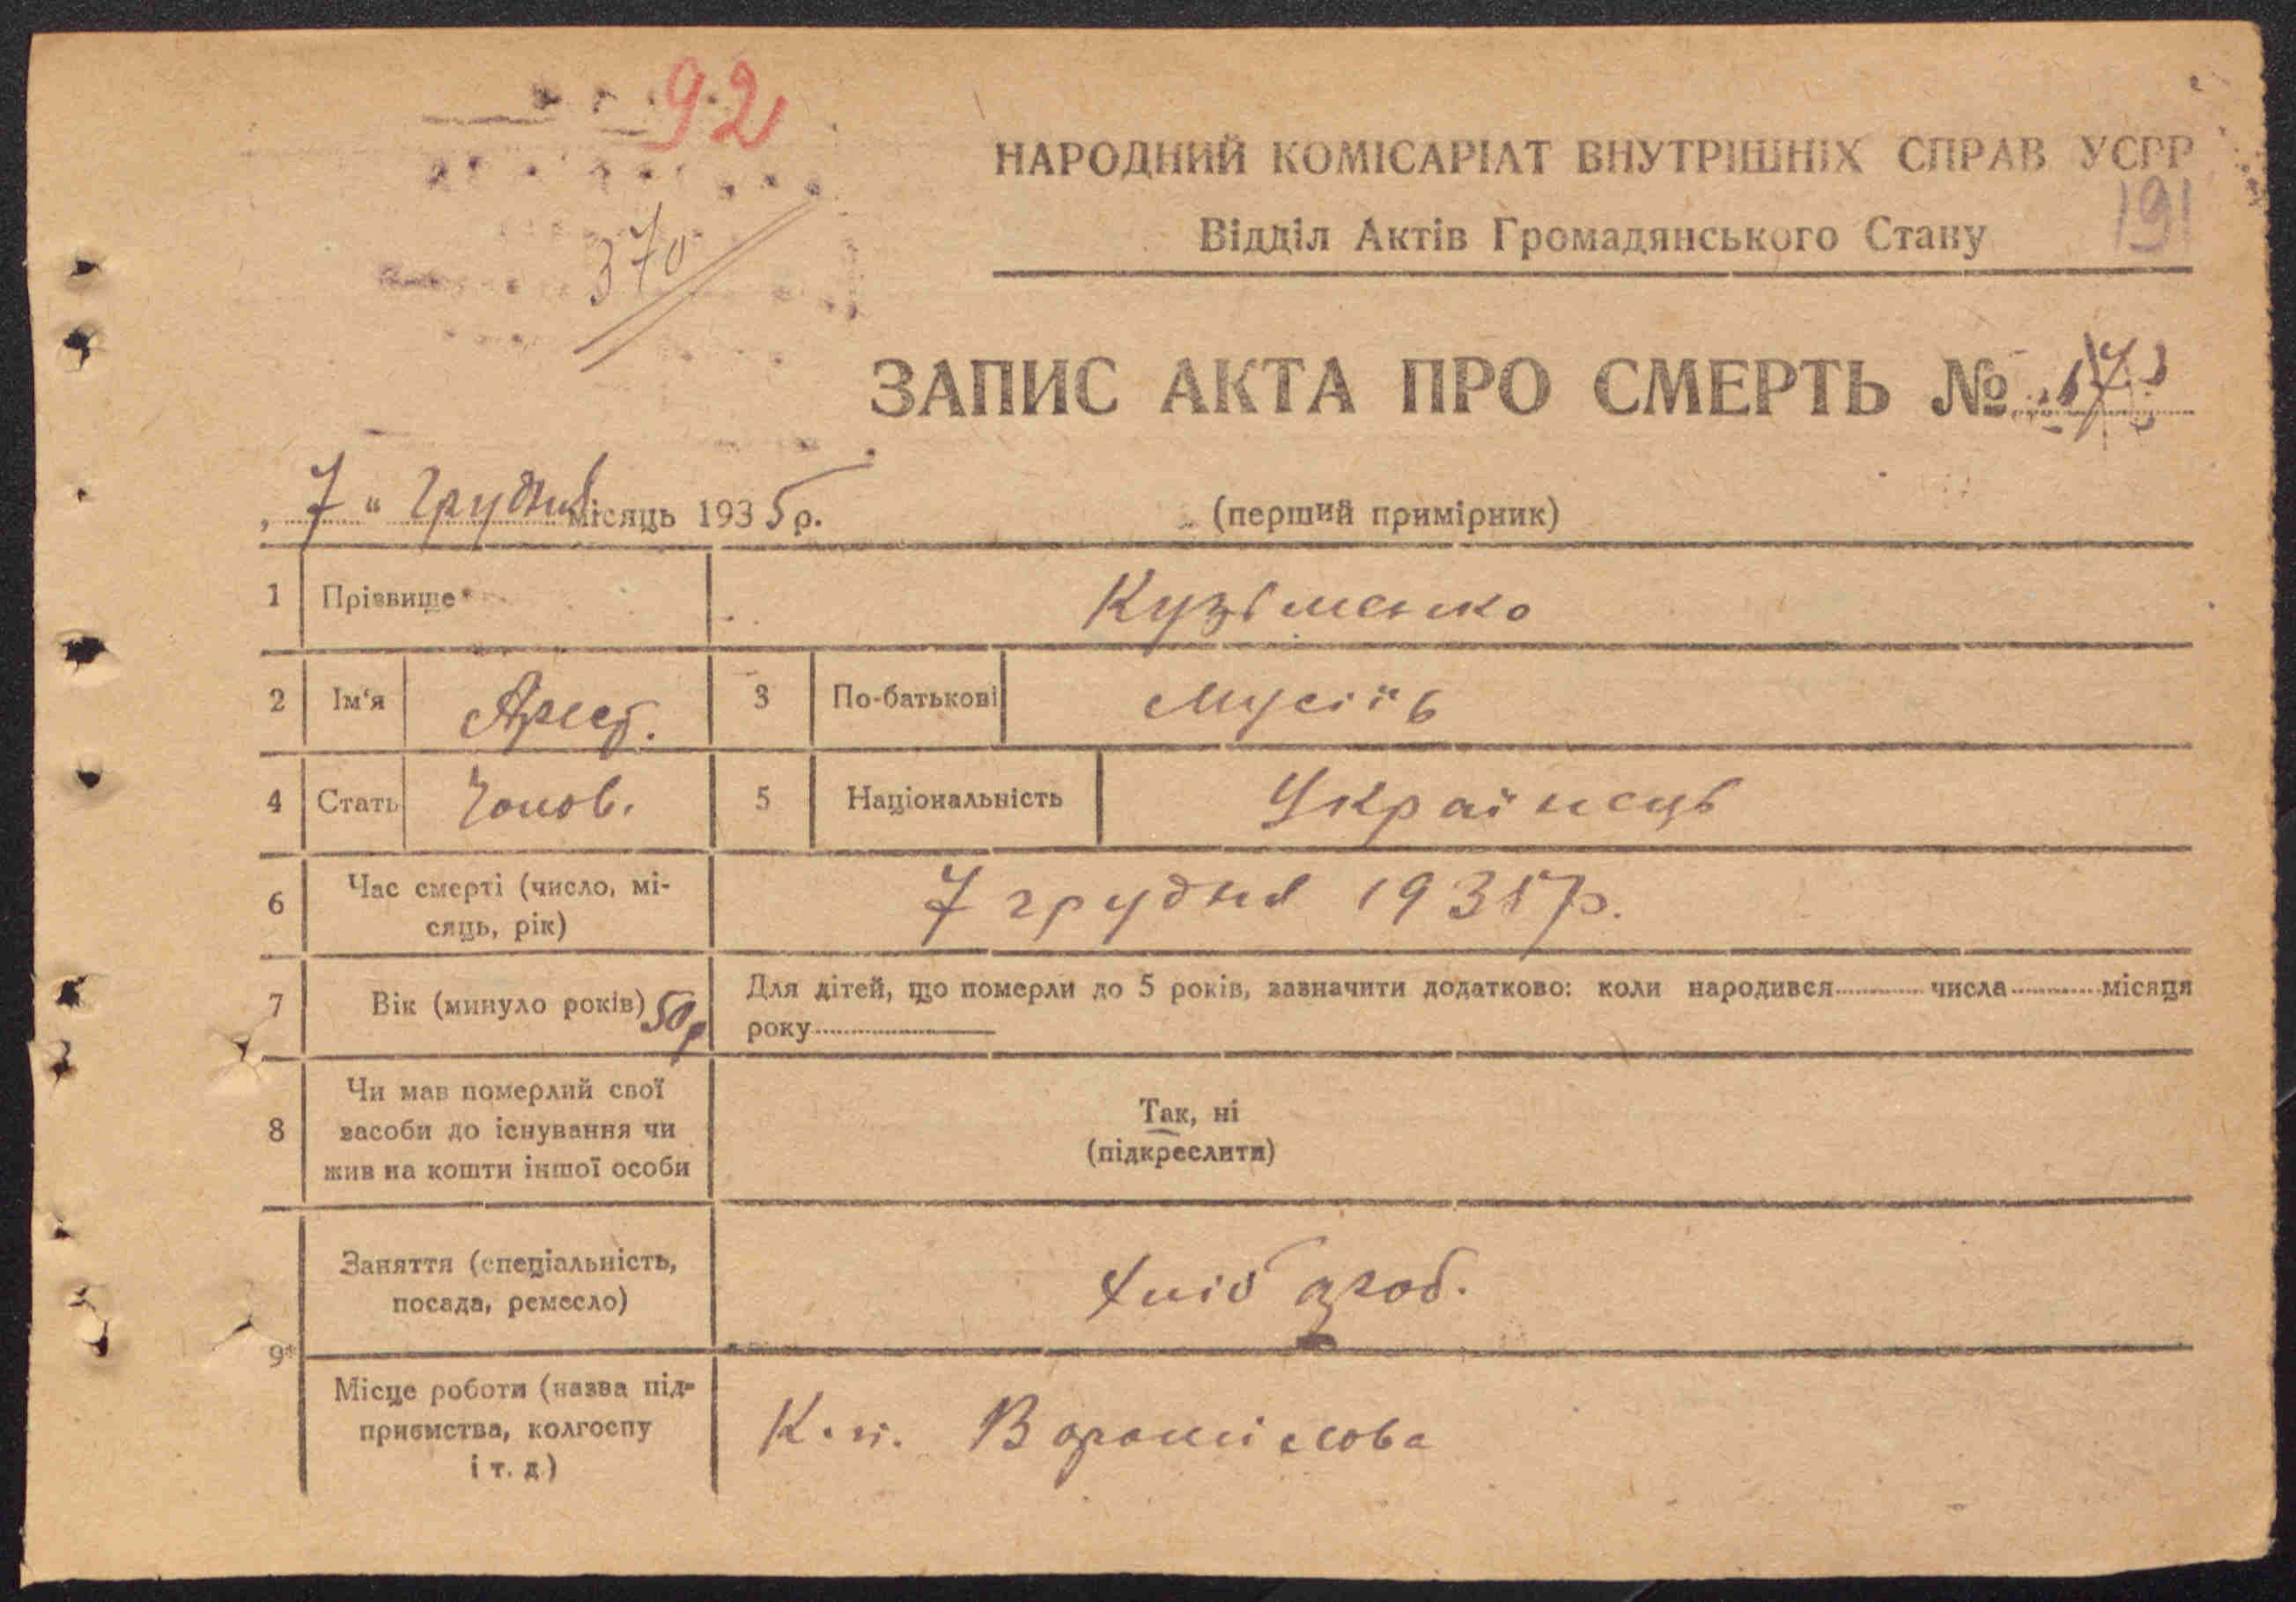 92
НАРОДНИЙ КОМІСАРІАТ ВНУТРІШНІХ СПРАВ УСРР
191
Відділ Актів Громадянського Стану
370
ЗАПИС АКТА ПРО СМЕРТЬ №
„ 7 " Грудня місяць 1935 р.
(перший примірник)
1 Прізвище* Кузьменко
2 Ім'я 3 По-батькові Мусіїв
4 Стать Чолов. 5 Національність Українець
6 Час смерті (число, мі-
сяць, рік)
7 грудня 1935 р.
7 Вік (минуло років) 50 р
Для дітей, що померли до 5 років, зазначити додатково: коли народився числа місяця
року
8 Чи мав померлий свої
засоби до існування чи
жив на кошти іншої особи
Так, ні
(підкреслити)
9*
Заняття (спеціальність,
посада, ремесло)
Хліб ороб.
Місце роботи (назва під-
приємства, колгоспу
і т. д.)
К. Ворошілова